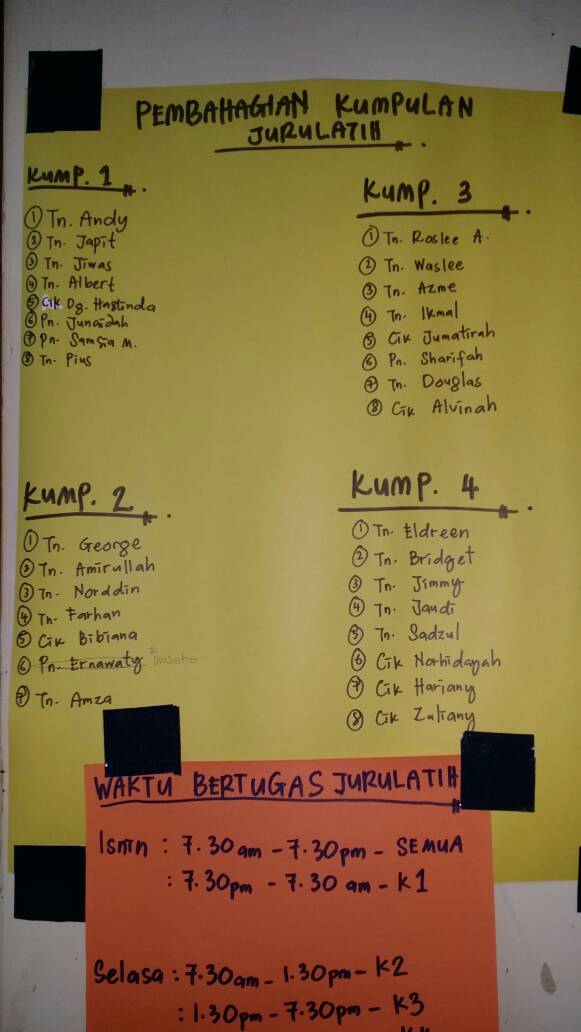 PEMBAHAGIAN KUMPULAN
JURULATIH
KUMP. 1
① Tn. Andy
② Tn. Japit
③ Tn. Jiwas
④ Tn. Albert
⑤ Cik Dg. Hastinda
⑥ Pn. Junaidah
⑦ Pn. Samsia M.
⑧ Tn. Pius
KUMP. 3
① Tn. Roslee A.
② Tn. Waslee
③ Tn. Azme
④ Tn. Ikmal
⑤ Cik Jumatirah
⑥ Pn. Sharifah
⑦ Tn. Douglas
⑧ Cik Alvinah
KUMP. 2
① Tn. George
② Tn. Amirullah
③ Tn. Norddin
④ Tn. Farhan
⑤ Cik Bibiana
⑥ Pn. Ernawaty
⑦ Tn. Amza
KUMP. 4
① Tn. Eldreen
② Tn. Bridget
③ Tn. Jimmy
④ Tn. Jandi
⑤ Tn. Sadzul
⑥ Cik Norhidayah
⑦ Cik Hariany
⑧ Cik Zuliany
WAKTU BERTUGAS JURULATIH
Isnin : 7.30 am - 7.30pm - SEMUA
: 7.30pm - 7.30 am - K1
Selasa : 7.30am - 1.30pm - K2
: 1.30pm - 7.30pm - K3